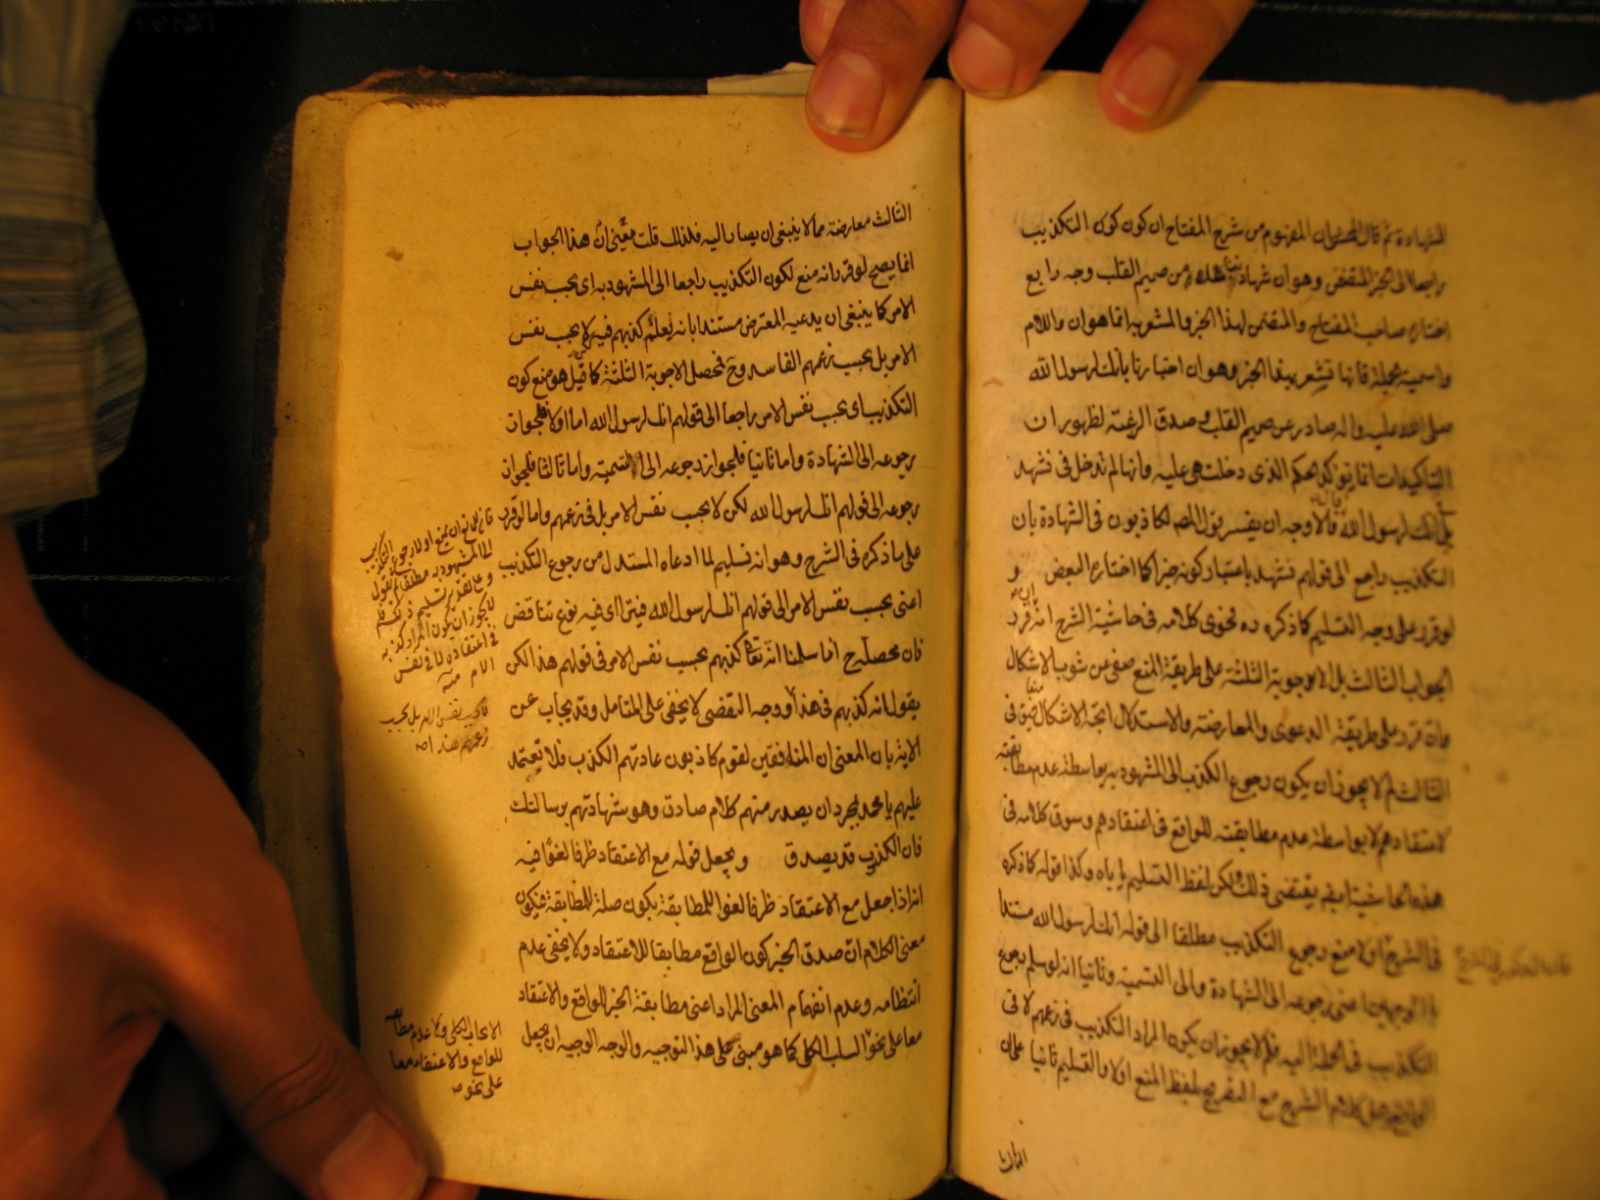 الشهادة ثم قال المحشى ان المفهوم من شرح المفتاح ان كون التكذيب
راجعا الى الخبر المتضمن وهو ان شهادتنا هذه من صميم القلب وجه رابع
اختاره صاحب المفتاح والمتضمن لهذا الخبر والمشعر به انما هو ان واللام
واسمية الجملة فانها تشعر بهذا الخبر وهو ان اخبارنا بانك لرسول الله
صلى الله عليه واله صادر عن صميم القلب وصدق الرغبة لظهور ان
التاكيدات انما يؤكد الحكم الذى دخلت هى عليه وانها لم تدخل فى نشهد
بل انك لرسول الله قال فالاوجه ان يفسر قوله لكاذبون فى الشهادة بان
التكذيب راجع الى قولهم نشهد باعتبار كونه خبرا كما اختاره البعض و
لو قرر على وجه التسليم كما ذكره ده فحوى كلامه فى حاشية الشرح انه قرر
الجواب الثالث بل الاجوبة الثلثة على طريقة المنع صفى عن شوب الاشكال
وان قرر على طريقة الدعوى والمعارضة والاستدلال اتجه الاشكال فى
الثالث لم لا يجوز ان يكون رجوع الكذب الى المشهود به بواسطة عدم مطابقته
لاعتقادهم لا بواسطة عدم مطابقته للواقع فى اعتقادهم وسوق كلامه فى
هذه الحاشية ايضا يقتضى ذلك ولكن لفظ التسليم ياباه وكذا قوله كما ذكره
فى الشرح اولا منع رجوع التكذيب مطلقا الى قوله انك لرسول الله مستندا
باالوجهين اعنى رجوعه الى الشهادة والى التسمية وثانيا انه لو سلم رجوع
التكذيب فى الجملة اليه فلم لا يجوز ان يكون المراد التكذيب فى زعمهم لا فى
الواقع كلام الشرح مع التصريح بلفظ المنع اولا والتسليم ثانيا على ان
الثالث
الثالث معارضة مما لا ينبغى ان يصار اليه فلذلك قلت معنى ان هذا الجواب
انما يصح لو قرر انه منع لكون التكذيب راجعا الى المشهود به اى بحسب نفس
الامر كما ينبغى ان يدعيه المعترض مستندا بانه كذبهم فيه لا بحسب نفس
الامر بل بحسب زعمهم الفاسد وح فحصل الاجوبة الثلثة كما قيل هو منع كون
التكذيب اى بحسب نفس الامر راجعا الى قولهم انك لرسول الله اما اولا فلجواز
رجوعه الى الشهادة واما ثانيا فلجواز رجوعه الى التسمية واما ثالثا فلجواز
رجوعه الى قولهم انك لرسول الله لكن لا بحسب نفس الامر بل فى زعمهم واما لو قرر
على ما ذكره فى الشرح وهو انه تسليم لما ادعاه المستدل من رجوع التكذيب
اعنى بحسب نفس الامر الى قولهم انك لرسول الله فيتراءى فيه نوع تناقض
فان محصله ح انا سلمنا انه تعالى كذبهم بحسب نفس الامر فى قولهم هذا لكن
يقول انه كذبهم فى هذا ووجه التفصى لا يخفى على المتامل وقد يجاب عن
الاية بان المعنى ان المنافقين لقوم كاذبون عادتهم الكذب فلا تعتمد
عليهم يا محمد بمجرد ان يصدر منهم كلام صادق وهو شهادتهم برسالتك
فان الكذوب قد يصدق ويجعل قوله مع الاعتقاد ظرفا لغوا فيه
انه اذا جعل مع الاعتقاد ظرفا لغوا للمطابقة يكون صلة للمطابقة فيكون
معنى الكلام ان صدق الخبر كون الواقع مطابقا للاعتقاد ولا يخفى عدم
انتظامه وعدم انفهام المعنى المراد اعنى مطابقة الخبر للواقع والاعتقاد
معا على نحو السلب الكلى كما هو مبنى على هذا التوجيه والوجه الوجيه ان يجعل
الى المشهود به مطلقا ثم يقول
وعلى تقدير تسليم ذلك فلم
لا يجوز ان يكون المراد كذبه
فى اعتقاده لا فى نفس
الامر منه
لا بحسب نفس الامر بل بحسب
زعمهم هذا
الايجاب الكلى ولا عدم مطابقته
للواقع والاعتقاد معا
على نحو